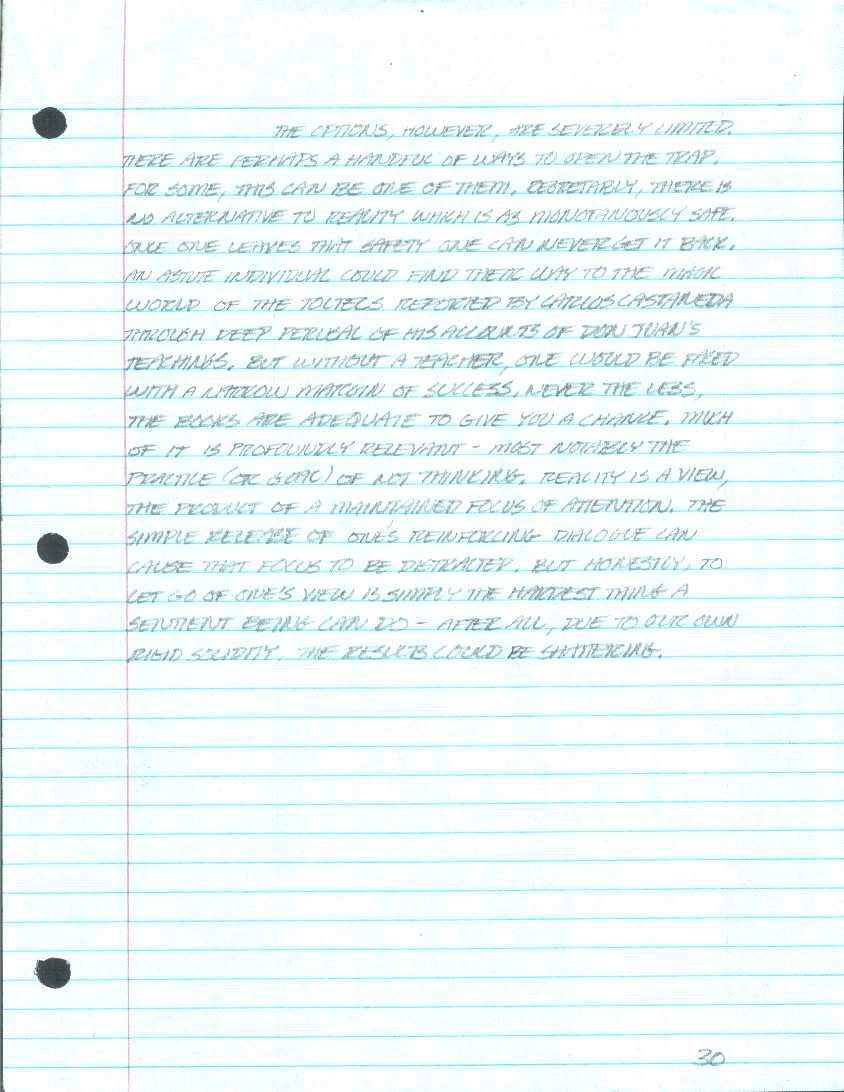 THE OPTIONS, HOWEVER, ARE SEVERELY LIMITED.
THERE ARE PERHAPS A HANDFUL OF WAYS TO OPEN THE TRAP.
FOR SOME, THIS CAN BE ONE OF THEM. REGRETABLY, THERE IS
NO ALTERNATIVE TO REALITY WHICH IS AS MONOTANOUSLY SAFE.
ONCE ONE LEAVES THAT SAFETY ONE CAN NEVER GET IT BACK.
AN ASTUTE INDIVIDUAL COULD FIND THEIR WAY TO THE MAGIC
WORLD OF THE TOLTECS REPORTED BY CARLOS CASTANEDA
THROUGH DEEP PERUSAL OF HIS ACCOUNTS OF DON JUAN'S
TEACHINGS. BUT WITHOUT A TEACHER, ONE WOULD BE FACED
WITH A NARROW MARGIN OF SUCCESS. NEVER THE LESS,
THE BOOKS ARE ADEQUATE TO GIVE YOU A CHANCE. MUCH
OF IT IS PROFOUNDLY RELEVANT - MOST NOTABLY THE
PRACTICE (OR GOAL) OF NOT THINKING. REALITY IS A VIEW,
THE PRODUCT OF A MAINTAINED FOCUS OF ATTENTION. THE
SIMPLE RELEASE OF ONE'S REINFORCING DIALOGUE CAN
CAUSE THAT FOCUS TO BE DISTRACTED. BUT HONESTLY, TO
LET GO OF ONE'S VIEW IS SIMPLY THE HARDEST THING A
SENTIENT BEING CAN DO - AFTER ALL, DUE TO OUR OWN
RIGID SOLIDITY, THE RESULTS COULD BE SHATTERING.
30